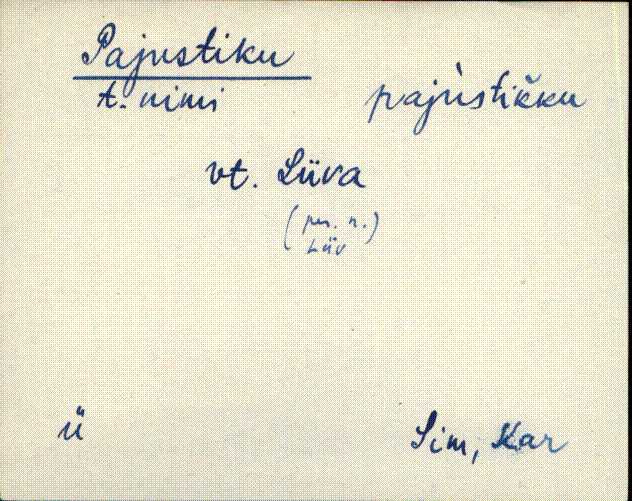 Pajustiku
t. nimi pajùstikku
vt. Liiva
(per. n.)
Liiv
ü Sim, Kar